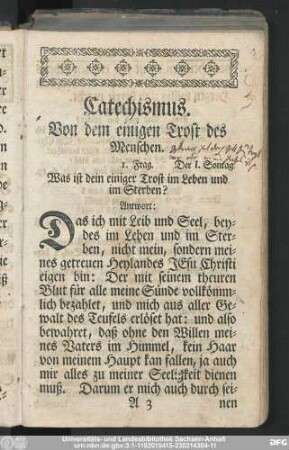 Catechismus.
Von dem einigen Trost des
Menschen.
1. Frag. Der 1. Sontag.
Was ist dein einiger Trost im Leben und
im Sterben?
Antwort:
Das ich mit Leib und Seel, bey-
des im Leben und im Ster-
ben, nicht mein, sondern mei-
nes getreuen Heylandes JEsu Christi
eigen bin: Der mit seinem theuren
Blut für alle meine Sünde vollkömm-
lich bezahlet, und mich aus aller Ge-
walt des Teufels erlöset hat: und also
bewahret, daß ohne den Willen mei-
nes Vaters im Himmel, kein Haar
von meinem Haupt kan fallen, ja auch
mir alles zu meiner Seeligkeit dienen
muß. Darum er mich auch durch sei-
A 3 nen
Universitäts- und Landesbibliothek Sachsen-Anhalt
urn:nbn:de:gbv:3:1-1192015415-230214304-11
DFG